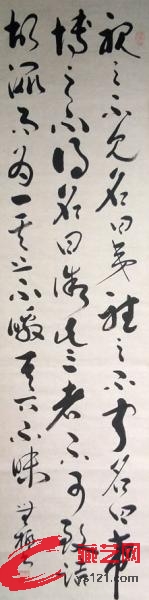 視之不見名曰夷聽之不聞名曰希
搏之不得名曰微此三者不可致詰
故混而為一其上不皦其下不昧
藏艺网
ys121.com